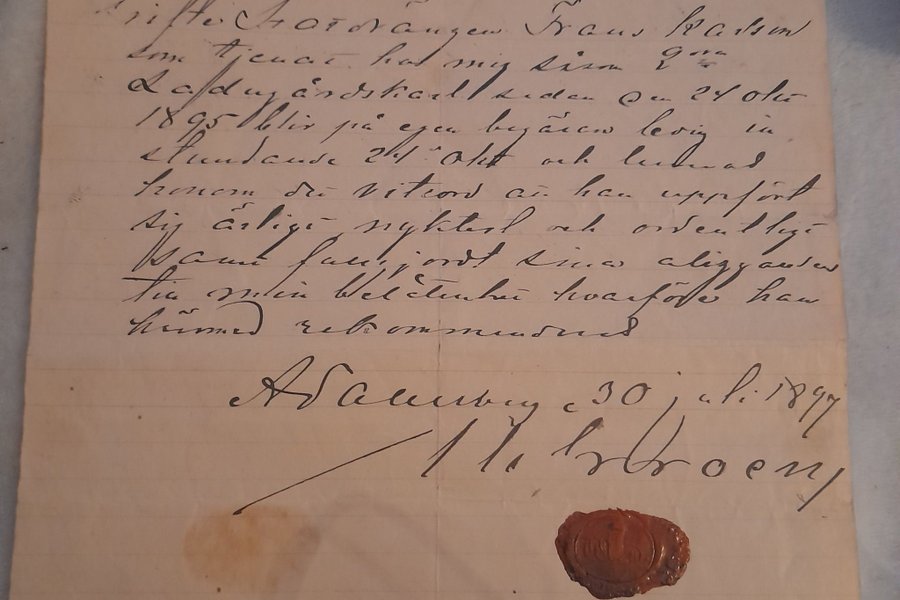 Statdrängen Frans Karlson
som tjenat hos mig såsom
Ladugårdskarl sedan den 24 Okt
1895 blir på egen begäran ledig in
stundande 24 Okt och lemnas
honom det vitord att han uppfört
sig ärligt nyktert och ordentligt
samt fullgjordt sina åligganden
till min belåtenhet hvarföre han
härmed rekommenderas
30 juli 1897